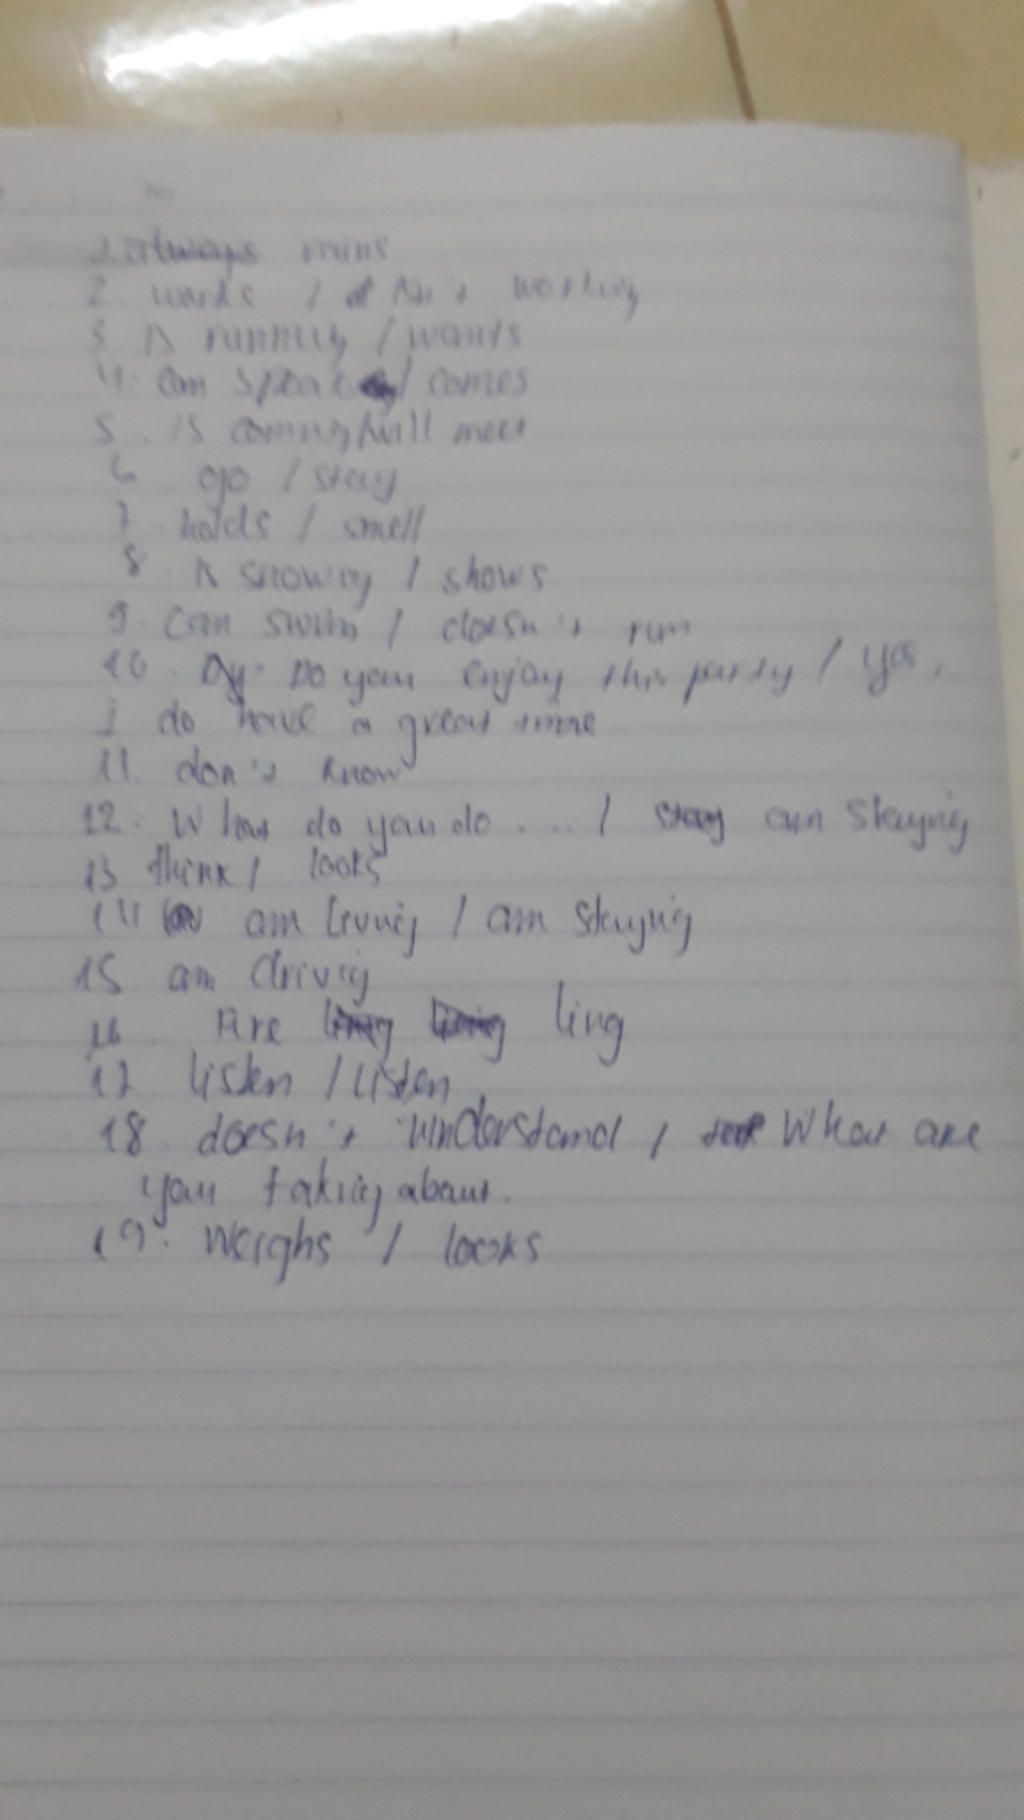 1. always rains
2. works / isn't working
3 is running / wants
4. can speak / comes
5. is coming/will meet
6 go / stay
7. holds / smell
8 is snowing / shows
9. can swim / doesn't run
10. Do you enjoy this party / yes,
I do have a great time
11. don't know
12. What do you do .... / am staying
13 think / looks
14 am living / am staying
15 am driving
16. Are ling
17 listen / listen
18. doesn't understand / What are
you taking about.
19. Weighs / looks